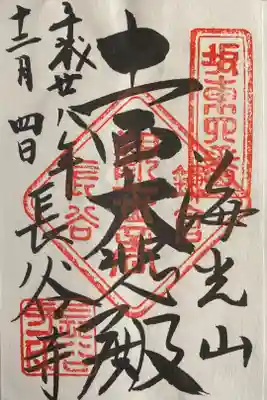 坂東第四番
海光山
十一面大悲殿
鎌倉
長谷
長谷寺
平成廿八年
十二月四日